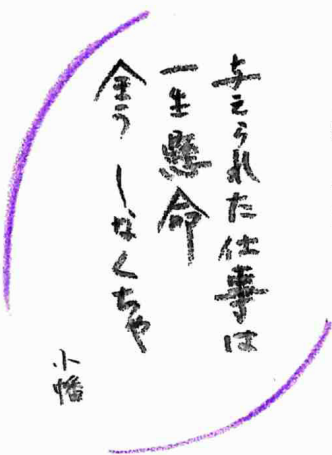 与えられた仕事は
一生懸命
全う しなくちゃ
小幡